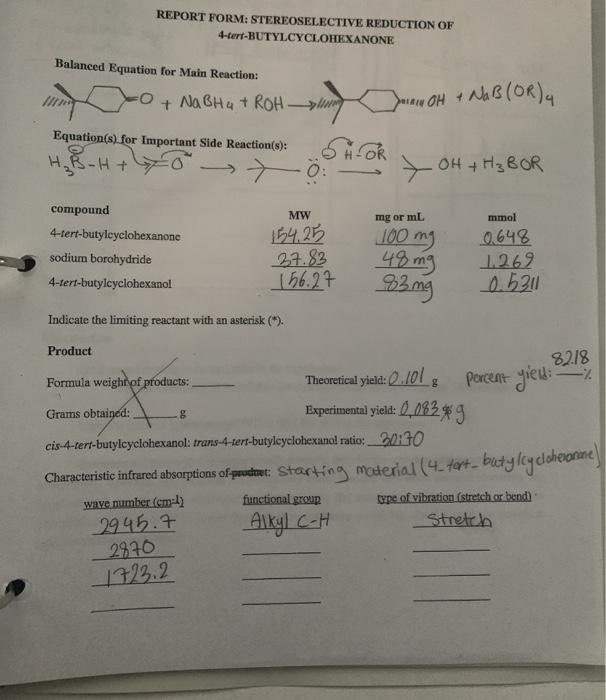 REPORT FORM: STEREOSELECTIVE REDUCTION OF
4-tert-BUTYLCYCLOHEXANONE
Balanced Equation for Main Reaction:
=O + NaBH4 + ROH → OH + NaB(OR)4
Equation(s) for Important Side Reaction(s):
H3B-H + =O → O: H-OR → OH + H3BOR
compound MW mg or mL mmol
4-tert-butylcyclohexanone 154.25 100 mg 0.648
sodium borohydride 37.83 48 mg 1.269
4-tert-butylcyclohexanol 156.27 83 mg 0.5311
Indicate the limiting reactant with an asterisk (*).
Product
Formula weight of products: Theoretical yield: 0.101 g percent yield: 82.18 %
Grams obtained: g Experimental yield: 0.083 g
cis-4-tert-butylcyclohexanol: trans-4-tert-butylcyclohexanol ratio: 30:70
Characteristic infrared absorptions of product: starting material (4-tert-butylcyclohexanone)
wave number (cm-1) functional group type of vibration (stretch or bend)
2945.7 Alkyl C-H Stretch
2870
1723.2